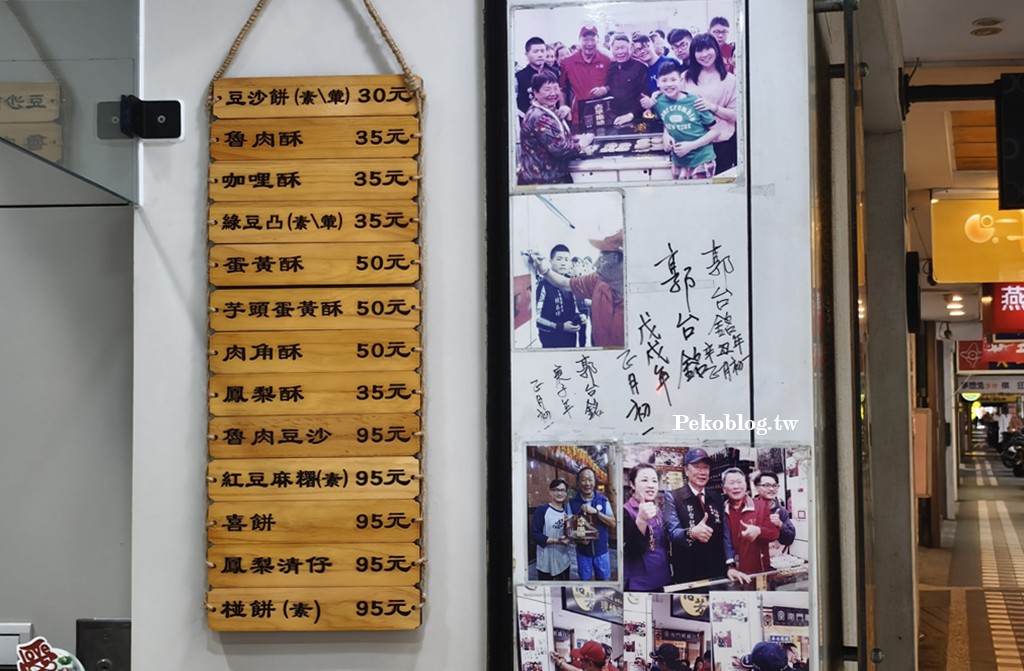 豆沙餅(素\葷) 30元
魯肉酥 35元
咖哩酥 35元
綠豆凸(素\葷) 35元
蛋黃酥 50元
芋頭蛋黃酥 50元
肉角酥 50元
鳳梨酥 35元
魯肉豆沙 95元
紅豆麻糬(素) 95元
喜餅 95元
鳳梨清仔 95元
椪餅(素) 95元
郭台銘
辛丑年
正月初一
郭台銘
戊戌年
正月初一
郭台銘
庚子年
正月初一
Pekoblog.tw
燕
LOVE